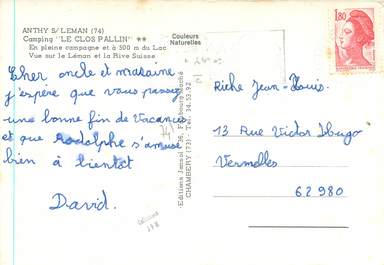 ANTHY S/LEMAN (74)
Camping "LE CLOS PALLIN" **
En pleine campagne et à 500 m du Lac
Vue sur le Léman et la Rive Suisse
Couleurs
Naturelles
1,80
Cher oncle et maraine
j'espère que vous passez
une bonne fin de Vacances
et que Rodolphe s'amuse
bien à bientôt
David.
Editions Jansol, 236, Faubourg Reclus
CHAMBERY (73) - Tél. 34.53.92
Riche Jean-Louis.
13 Rue Victor Hugo
Vermelles
62980